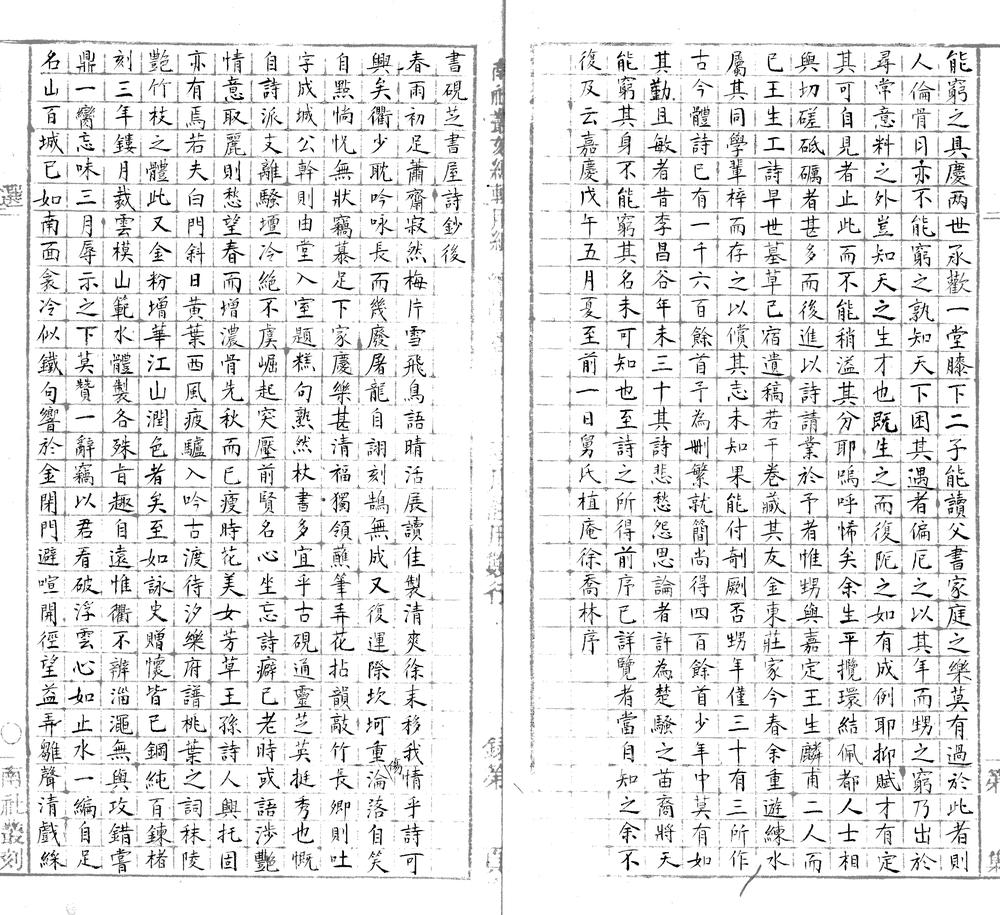 能窮之具慶兩世承歡一堂膝下二子能讀父書家庭之樂莫有過於此者則
人倫骨月亦不能窮之孰知天下困其遇者偏厄之以其年而甥之窮乃出於
尋常意料之外豈知天之生才也既生之而復阨之如有成例耶抑賦才有定
其可自見者止此而不能稍溢其分耶嗚呼悕矣余生平攬環結佩都人士相
與切磋砥礪者甚多而後進以詩請業於予者惟甥與嘉定王生麟甫二人而
已王生工詩早世墓草已宿遺稿若干卷藏其友金東莊家今春余重遊練水
屬其同學輩梓而存之以償其志未知果能付剞劂否甥年僅三十有三所作
古今體詩已有一千六百餘首予為刪繁就簡尚得四百餘首少年中莫有如
其勤且敏者昔李昌谷年未三十其詩悲愁怨思論者許為楚騷之苗裔將天
能窮其身不能窮其名未可知也至詩之所得前序已詳覽者當自知之余不
復及云嘉慶戊午五月夏至前一日舅氏植庵徐喬林序
書硯芝書屋詩鈔後
春雨初足蕭齋寂然梅片雪飛鳥語晴活展讀佳製清爽徐來移我情乎詩可
興矣衢少耽吟咏長而幾廢屠龍自詡刻鵠無成又復運際坎坷重淪落自笑
傷
自點惝怳無狀竊慕足下家慶樂甚清福獨領蘸筆弄花拈韻敲竹長卿則吐
字成城公幹則由堂入室題糕句熟然杖書多宜乎古硯通靈芝英挺秀也慨
自詩派支離騷壇冷絕不虞崛起突壓前賢名心坐忘詩癖已老時或語涉艷
情意取麗則愁望春而增濃骨先秋而已瘦時花美女芳草王孫詩人興托固
亦有焉若夫白門斜日黃葉西風疲驢入吟古渡待汐樂府譜桃葉之詞秣陵
艷竹枝之體此又金粉增華江山潤色者矣至如詠史贈懷皆已鋼純百鍊楮
刻三年鏤月裁雲模山範水體製各殊旨趣自遠惟衢不辨淄澠無與攻錯嘗
鼎一臠忘味三月辱示之下莫贊一辭竊以君看破浮雲心如止水一編自足
名山百城已如南面衾冷似鐵句響於金閉門避喧開徑望益弄雛聲清戲綵
南社叢刻
二
選